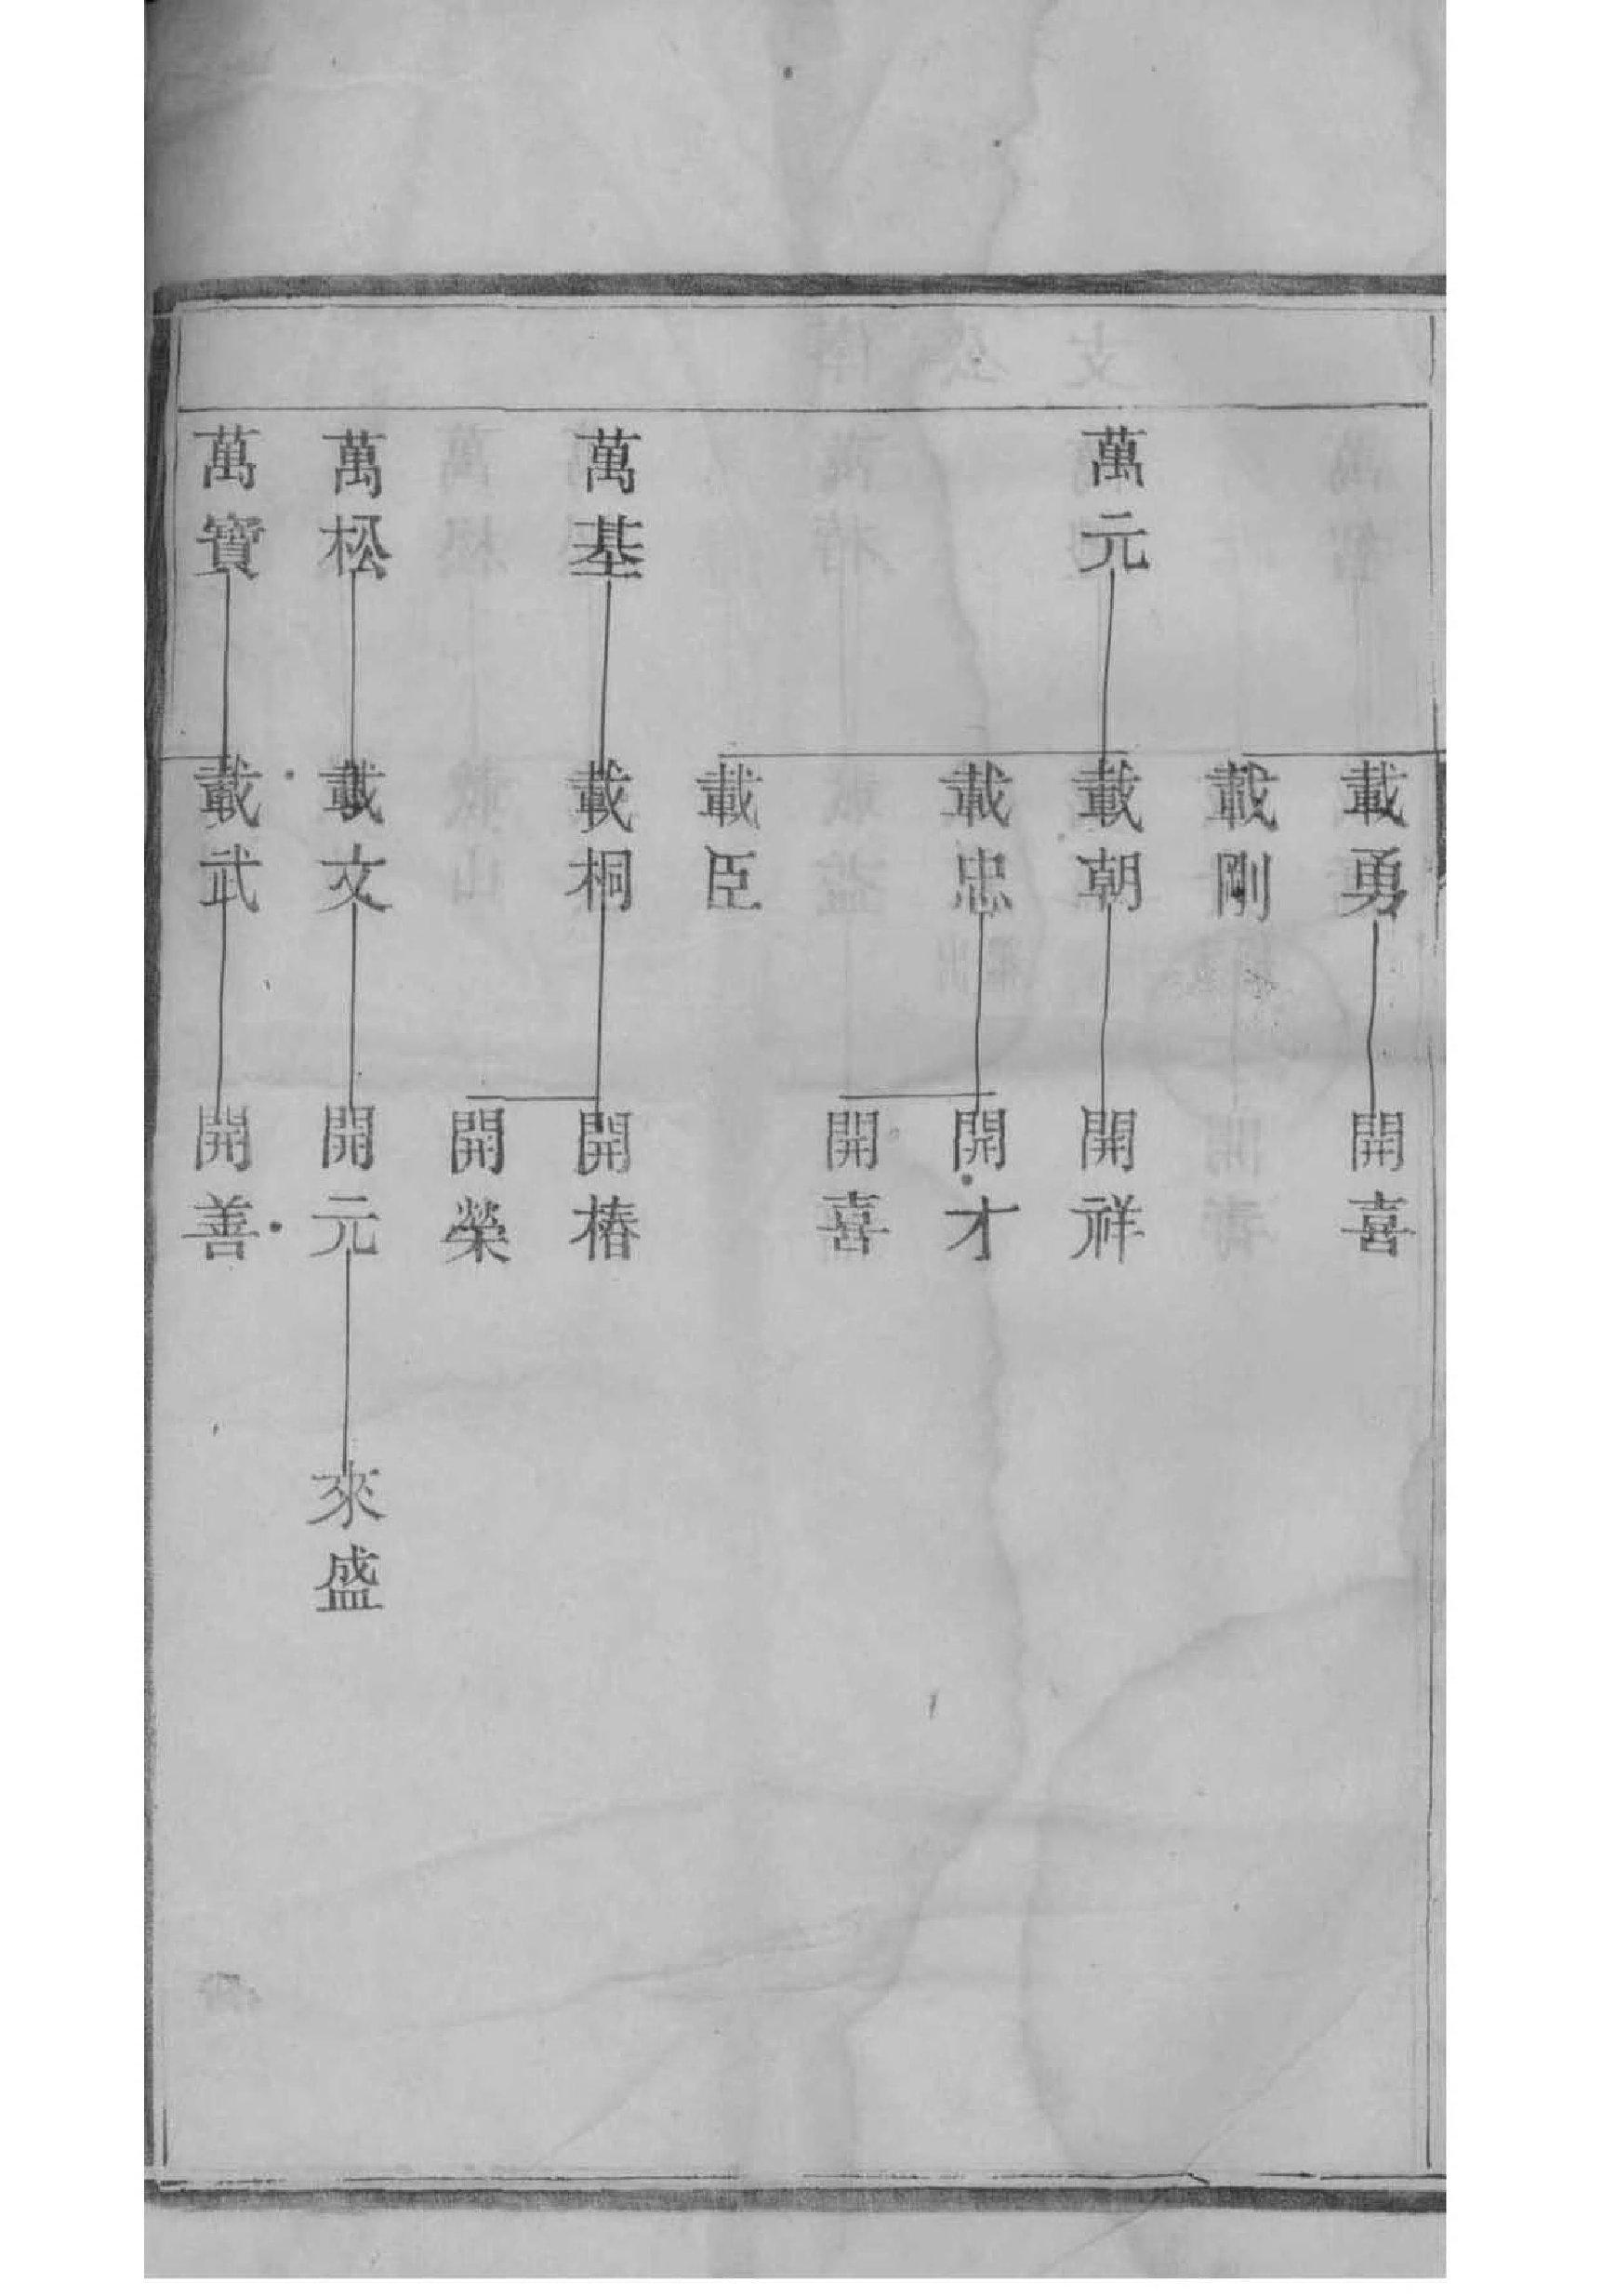 載勇
開喜
載剛
萬元
載朝
開祥
載忠
開才
開喜
載臣
萬基
載桐
開椿
開榮
萬松
載文
開元
來盛
萬寶
載武
開善